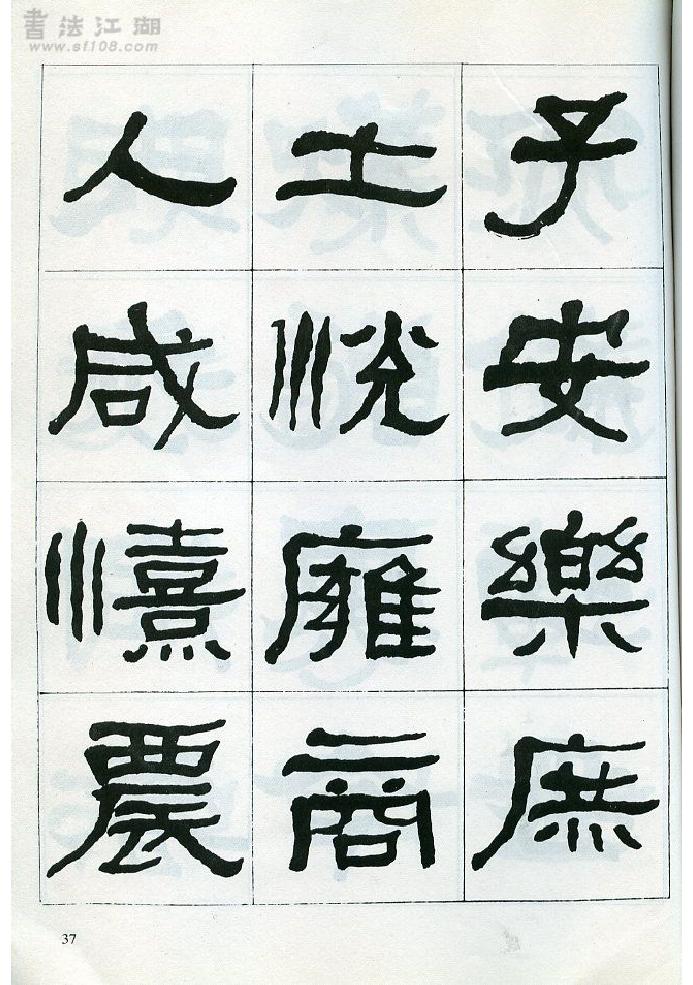 書法江湖
www.sf108.com
子安樂庶
士悅雍商
人咸憘農
37